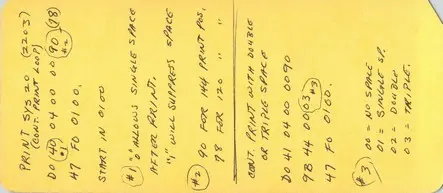 PRINT SYS 20 (2203)
(CONT. PRINT LOOP)
DO 40 04 00 00 90 (78)
#1 #2
47 F0 01 00.
START IN 0100
#1) "0" ALLOWS SINGLE SPACE
AFTER PRINT.
"1" WILL SUPPRESS SPACE
#2) 90 FOR 144 PRINT POS.
78 FOR 120 " "
CONT. PRINT WITH DOUBLE
OR TRIPLE SPACE
DO 41 04 00 0090
9B 44 00 03
#3
47 F0 0100.
#3) 00 = NO SPACE
01 = SINGLE SP.
02 = DOUBLE
03 = TRIPLE.